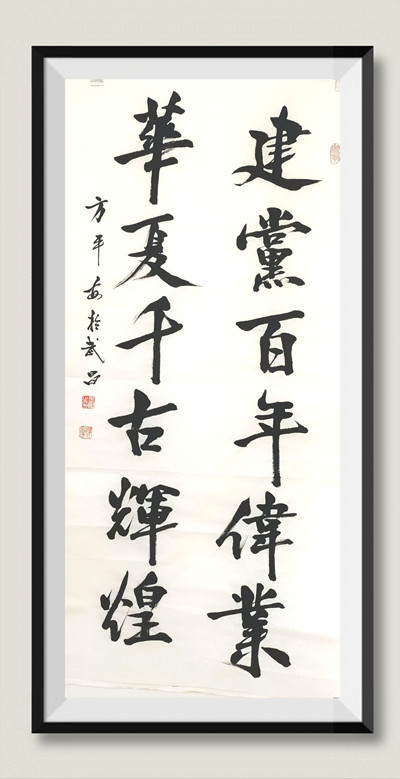 建黨百年偉業
華夏千古輝煌
方平書於武昌